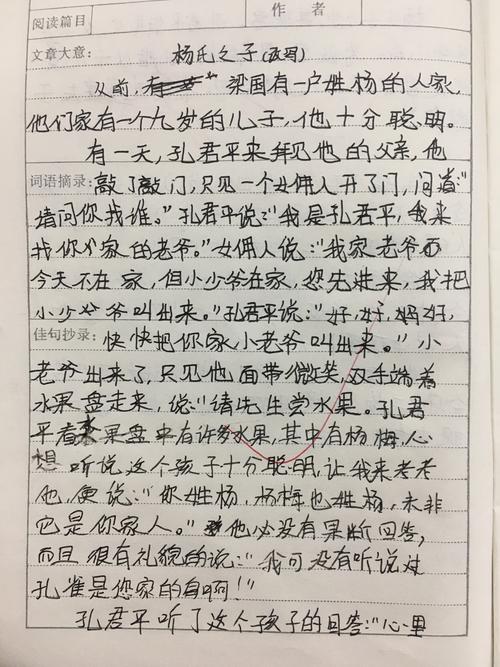 阅读篇目
作者
文章大意:
杨氏之子(改写)
从前,梁国有一户姓杨的人家,
他们家有一个九岁的儿子,他十分聪明。
有一天,孔君平来拜见他的父亲,他
词语摘录:敲了敲门,只见一个女佣人开了门,问道:“
请问你找谁。”孔君平说:“我是孔君平,我来
找你家的老爷。”女佣人说:“我家老爷
今天不在家,但小少爷在家,您先进来,我把
小少爷叫出来。”孔君平说:“好,好,好,
佳句抄录:快快把你家小老爷叫出来。”小
老爷出来了,只见他面带微笑,双手端着
水果盘走来,说:“请先生尝水果。孔君
平看果盘中有许多水果,其中有杨梅,心
想听说这个孩子十分聪明,让我来考考
他,便说:“你姓杨,杨梅也姓杨,未非
它是你家人。”他必没有果断回答,
而且很有礼貌的说:“我可没有听说过
孔雀是您家的鸟啊!”
孔君平听了这个孩子的回答:“心里